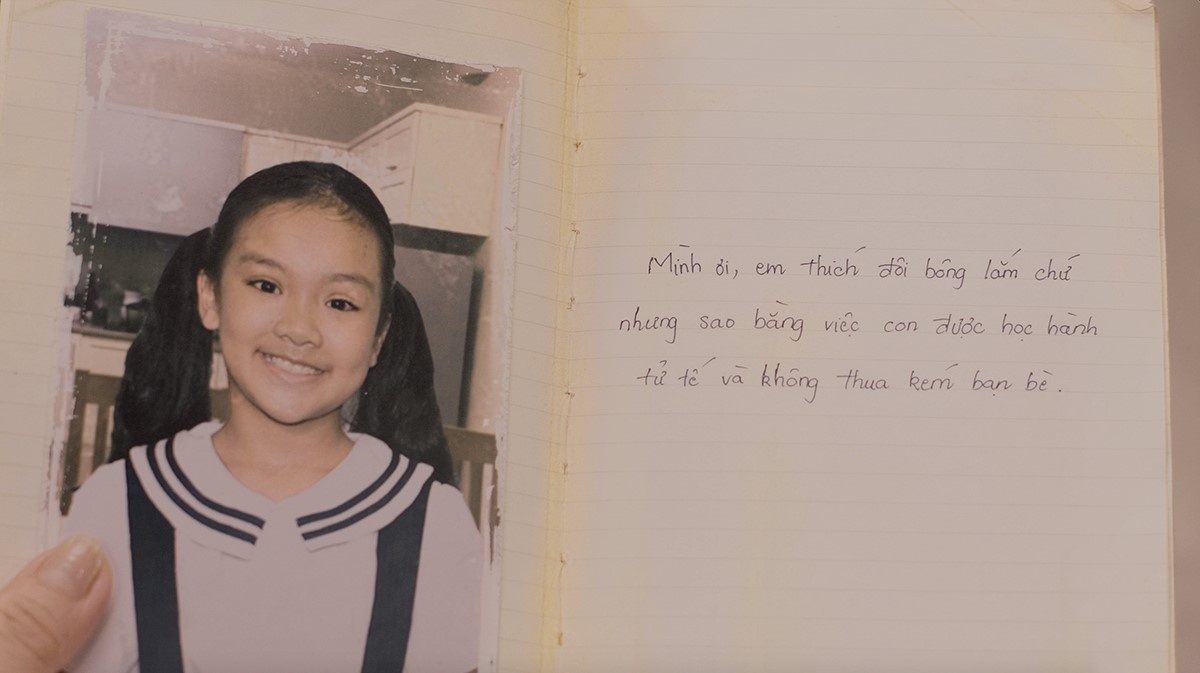 Mình ơi, em thích đôi bông lắm chứ
nhưng sao bằng việc con được học hành
tử tế và không thua kém bạn bè.